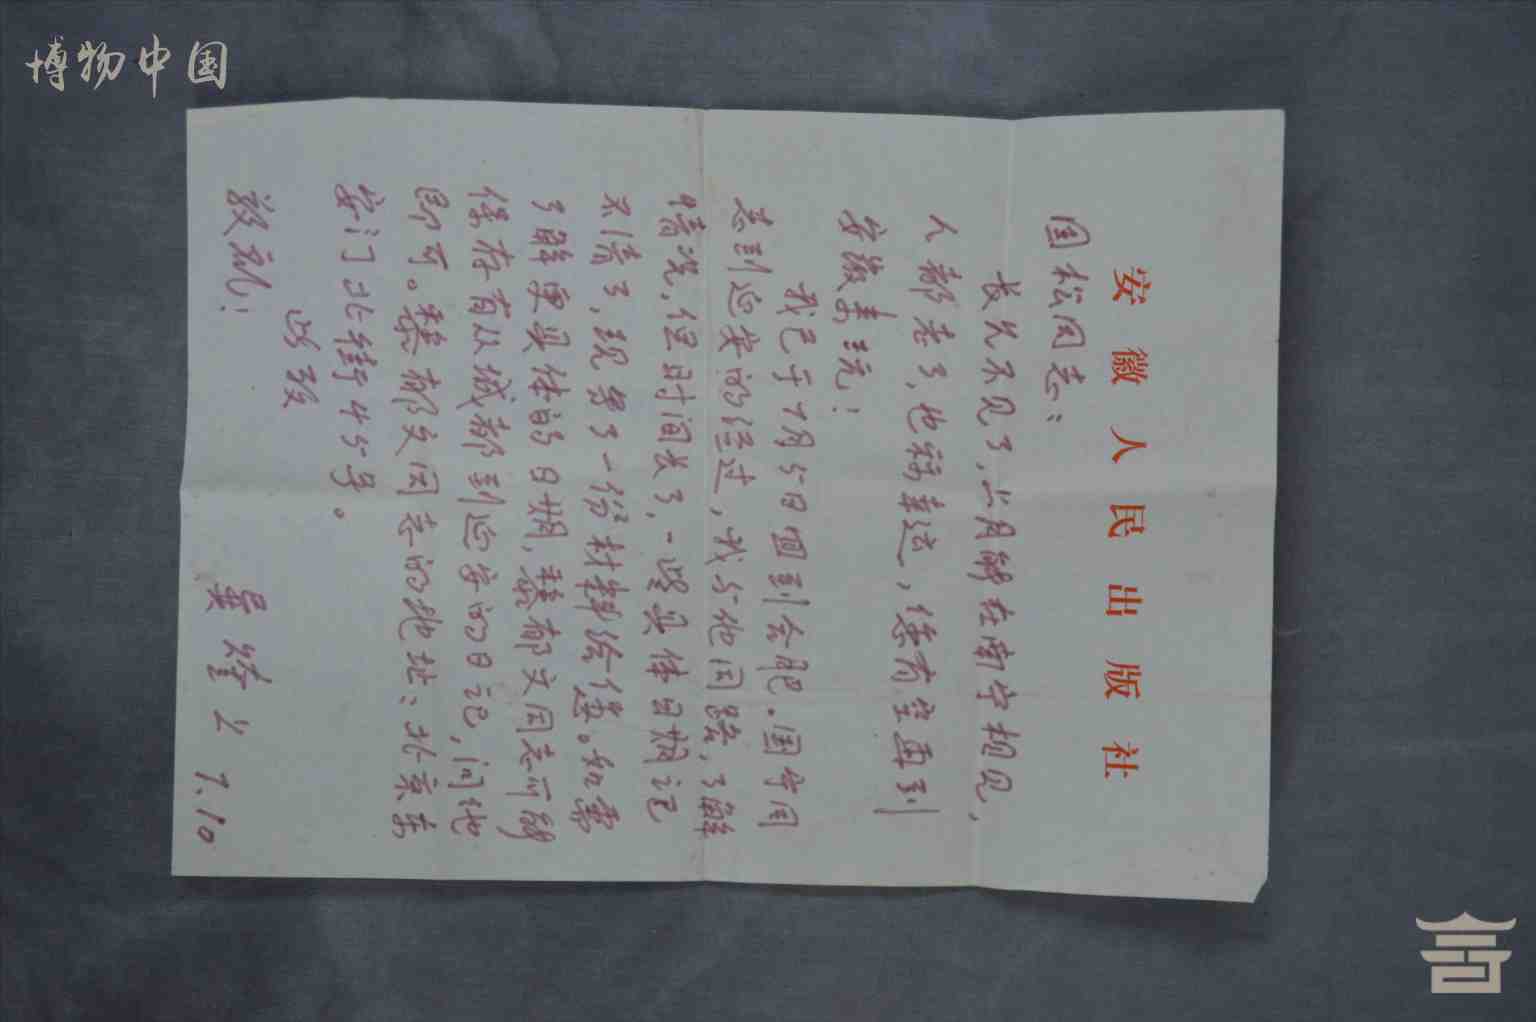 博物中国
安徽人民出版社
国松同志：
长久不见了，六月能在南宁相见，
人都老了，也稱幸运，侯有空再到
安徽来玩！
我已于7月5日回到合肥。国宁同
志到延安的经过，我与他同路，了解
情况，但时间长了，一些具体日期记
不清了，现写了一份材料给您。如需
了解更具体的日期，黎郁文同志可能
保存有从城都到延安的日记，问他
即可。黎郁文同志的地址：北京东
安门北街45号。
此致
敬礼！
吴 上
7.10